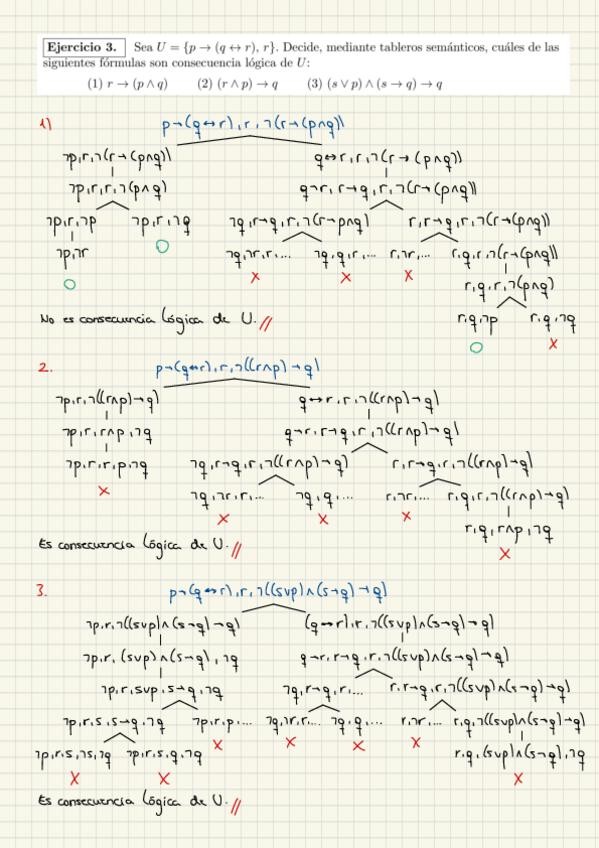 Ejercicio 3. Sea U = {p → (q ↔ r), r}. Decide, mediante tableros semánticos, cuáles de las
siguientes fórmulas son consecuencia lógica de U:
(1) r → (p ∧ q) (2) (r ∧ p) → q (3) (s ∨ p) ∧ (s → q) → q
1) p→(q↔r), r, ¬(r→(p∧q))
¬p,r,¬(r→(p∧q)) q↔r,r,¬(r→(p∧q))
¬p,r,r,¬(p∧q) q→r, r→q,r,¬(r→(p∧q))
¬p,r,¬p ¬p,r,¬q ¬q,r→q,r,¬(r→p∧q) r,r→q,r,¬(r→(p∧q))
¬p,¬r O ¬q,¬r,r,... ¬q,q,r,... r,¬r,... r,q,r,¬(r→(p∧q))
O X X X r,q,r,¬(p∧q)
r,q,¬p r,q,¬q
No es consecuencia Lógica de U. //
O X
2. p→(q↔r),r,¬((r∧p)→q)
¬p,r,¬((r∧p)→q) q↔r,r,¬((r∧p)→q)
¬p,r,r∧p,¬q q→r,r→q,r,¬((r∧p)→q)
¬p,r,r,p,¬q ¬q,r→q,r,¬((r∧p)→q) r,r→q,r,¬((r∧p)→q)
X ¬q,¬r,r,... ¬q,q,... r,¬r,... r,q,r,¬((r∧p)→q)
X X X r,q,r∧p,¬q
Es consecuencia Lógica de U. // X
3. p→(q↔r),r,¬((s∨p)∧(s→q)→q)
¬p,r,¬((s∨p)∧(s→q)→q) (q↔r),r,¬((s∨p)∧(s→q)→q)
¬p,r,(s∨p)∧(s→q),¬q q→r,r→q,r,¬((s∨p)∧(s→q)→q)
¬p,r,s∨p,s→q,¬q ¬q,r→q,r,... r,r→q,r,¬((s∨p)∧(s→q)→q)
¬p,r,s,s→q,¬q ¬p,r,p,... ¬q,¬r,r,... ¬q,q,... r,¬r,... r,q,¬((s∨p)∧(s→q)→q)
¬p,r,s,¬s,¬q ¬p,r,s,q,¬q X X X X r,q,(s∨p)∧(s→q),¬q
X X X
Es consecuencia Lógica de U. //